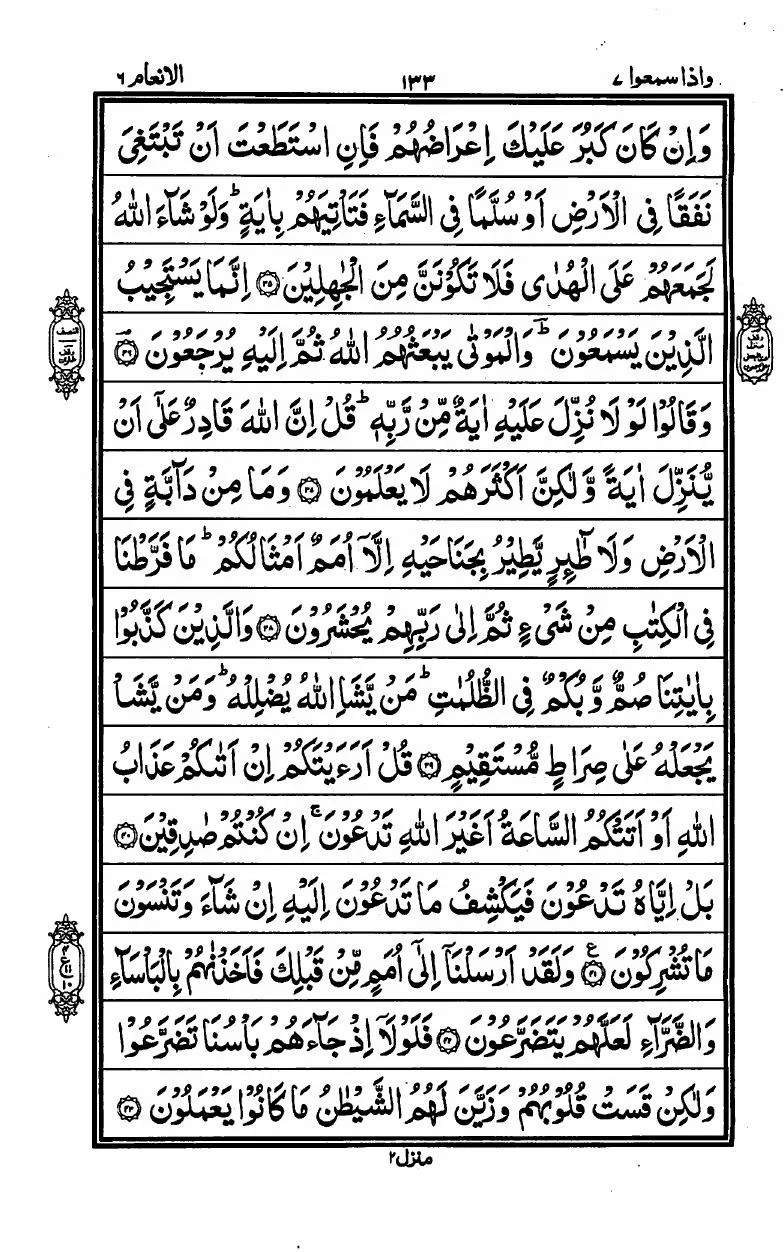 واذا سمعوا ۷
۱۳۳
الانعام ۶
وَاِنْ كَانَ كَبُرَ عَلَيْكَ اِعْرَاضُهُمْ فَاِنِ اسْتَطَعْتَ اَنْ تَبْتَغِىَ
نَفَقًا فِى الْاَرْضِ اَوْ سُلَّمًا فِى السَّمَآءِ فَتَاْتِيَهُمْ بِاٰيَةٍ ؕ وَلَوْ شَآءَ اللّٰهُ
لَجَمَعَهُمْ عَلَى الْهُدٰى فَلَا تَكُوْنَنَّ مِنَ الْجٰهِلِيْنَ ۳۵ اِنَّمَا يَسْتَجِيْبُ
الَّذِيْنَ يَسْمَعُوْنَ ؕ وَالْمَوْتٰى يَبْعَثُهُمُ اللّٰهُ ثُمَّ اِلَيْهِ يُرْجَعُوْنَ ۳۶
وَقَالُوْا لَوْ لَا نُزِّلَ عَلَيْهِ اٰيَةٌ مِّنْ رَّبِّهٖ ؕ قُلْ اِنَّ اللّٰهَ قَادِرٌ عَلٰٓى اَنْ
يُّنَزِّلَ اٰيَةً وَّلٰكِنَّ اَكْثَرَهُمْ لَا يَعْلَمُوْنَ ۳۷ وَمَا مِنْ دَآبَّةٍ فِى
الْاَرْضِ وَلَا طٰٓئِرٍ يَّطِيْرُ بِجَنَاحَيْهِ اِلَّاۤ اُمَمٌ اَمْثَالُكُمْ ؕ مَا فَرَّطْنَا
فِى الْكِتٰبِ مِنْ شَىْءٍ ثُمَّ اِلٰى رَبِّهِمْ يُحْشَرُوْنَ ۳۸ وَالَّذِيْنَ كَذَّبُوْا
بِاٰيٰتِنَا صُمٌّ وَّبُكْمٌ فِى الظُّلُمٰتِ ؕ مَنْ يَّشَاِ اللّٰهُ يُضْلِلْهُ ؕ وَمَنْ يَّشَاْ
يَجْعَلْهُ عَلٰى صِرَاطٍ مُّسْتَقِيْمٍ ۳۹ قُلْ اَرَءَيْتَكُمْ اِنْ اَتٰىكُمْ عَذَابُ
اللّٰهِ اَوْ اَتَتْكُمُ السَّاعَةُ اَغَيْرَ اللّٰهِ تَدْعُوْنَ ۚ اِنْ كُنْتُمْ صٰدِقِيْنَ ۴۰
بَلْ اِيَّاهُ تَدْعُوْنَ فَيَكْشِفُ مَا تَدْعُوْنَ اِلَيْهِ اِنْ شَآءَ وَتَنْسَوْنَ
مَا تُشْرِكُوْنَ ۴۱ ع وَلَقَدْ اَرْسَلْنَاۤ اِلٰٓى اُمَمٍ مِّنْ قَبْلِكَ فَاَخَذْنٰهُمْ بِالْبَاْسَآءِ
وَالضَّرَّآءِ لَعَلَّهُمْ يَتَضَرَّعُوْنَ ۴۲ فَلَوْلَاۤ اِذْ جَآءَهُمْ بَاْسُنَا تَضَرَّعُوْا
وَلٰكِنْ قَسَتْ قُلُوْبُهُمْ وَزَيَّنَ لَهُمُ الشَّيْطٰنُ مَا كَانُوْا يَعْمَلُوْنَ ۴۳
۴
ع ۱۱
۱۰
منزل ۲